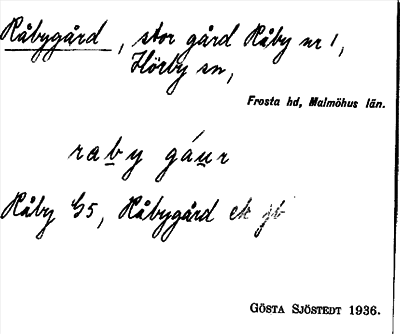 Råbygård, stor gård Råby nr 1,
Hörby sn,
Frosta hd, Malmöhus län.
raby gáur
Råby G5, Råbygård ek jb
GÖSTA SJÖSTEDT 1936.